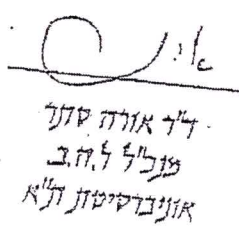 ד"ר אורה סתר
מנכ"ל ל.ה.ב
אוניברסיטת ת"א